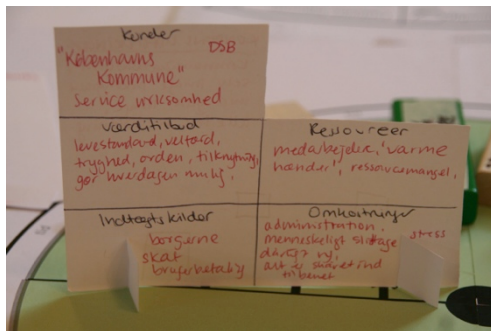 Kunder
DSB
"Københavns
Kommune"
Service virksomhed
Værditilbud
levestandard, velfærd,
tryghed, orden, tilknytning,
gør hverdagen mulig,
Ressourcer
medarbejdere, "varme
hænder", ressourcemangel,
Indtægtskilder
borgerne
skat
brugerbetaling
Omkostninger
administration,
menneskeligt slitage
dårligt ry,
alt er skåret ind
til benet
stress